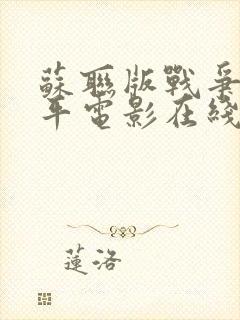 蘇聯版戰爭
平電影在綫
蓮洛